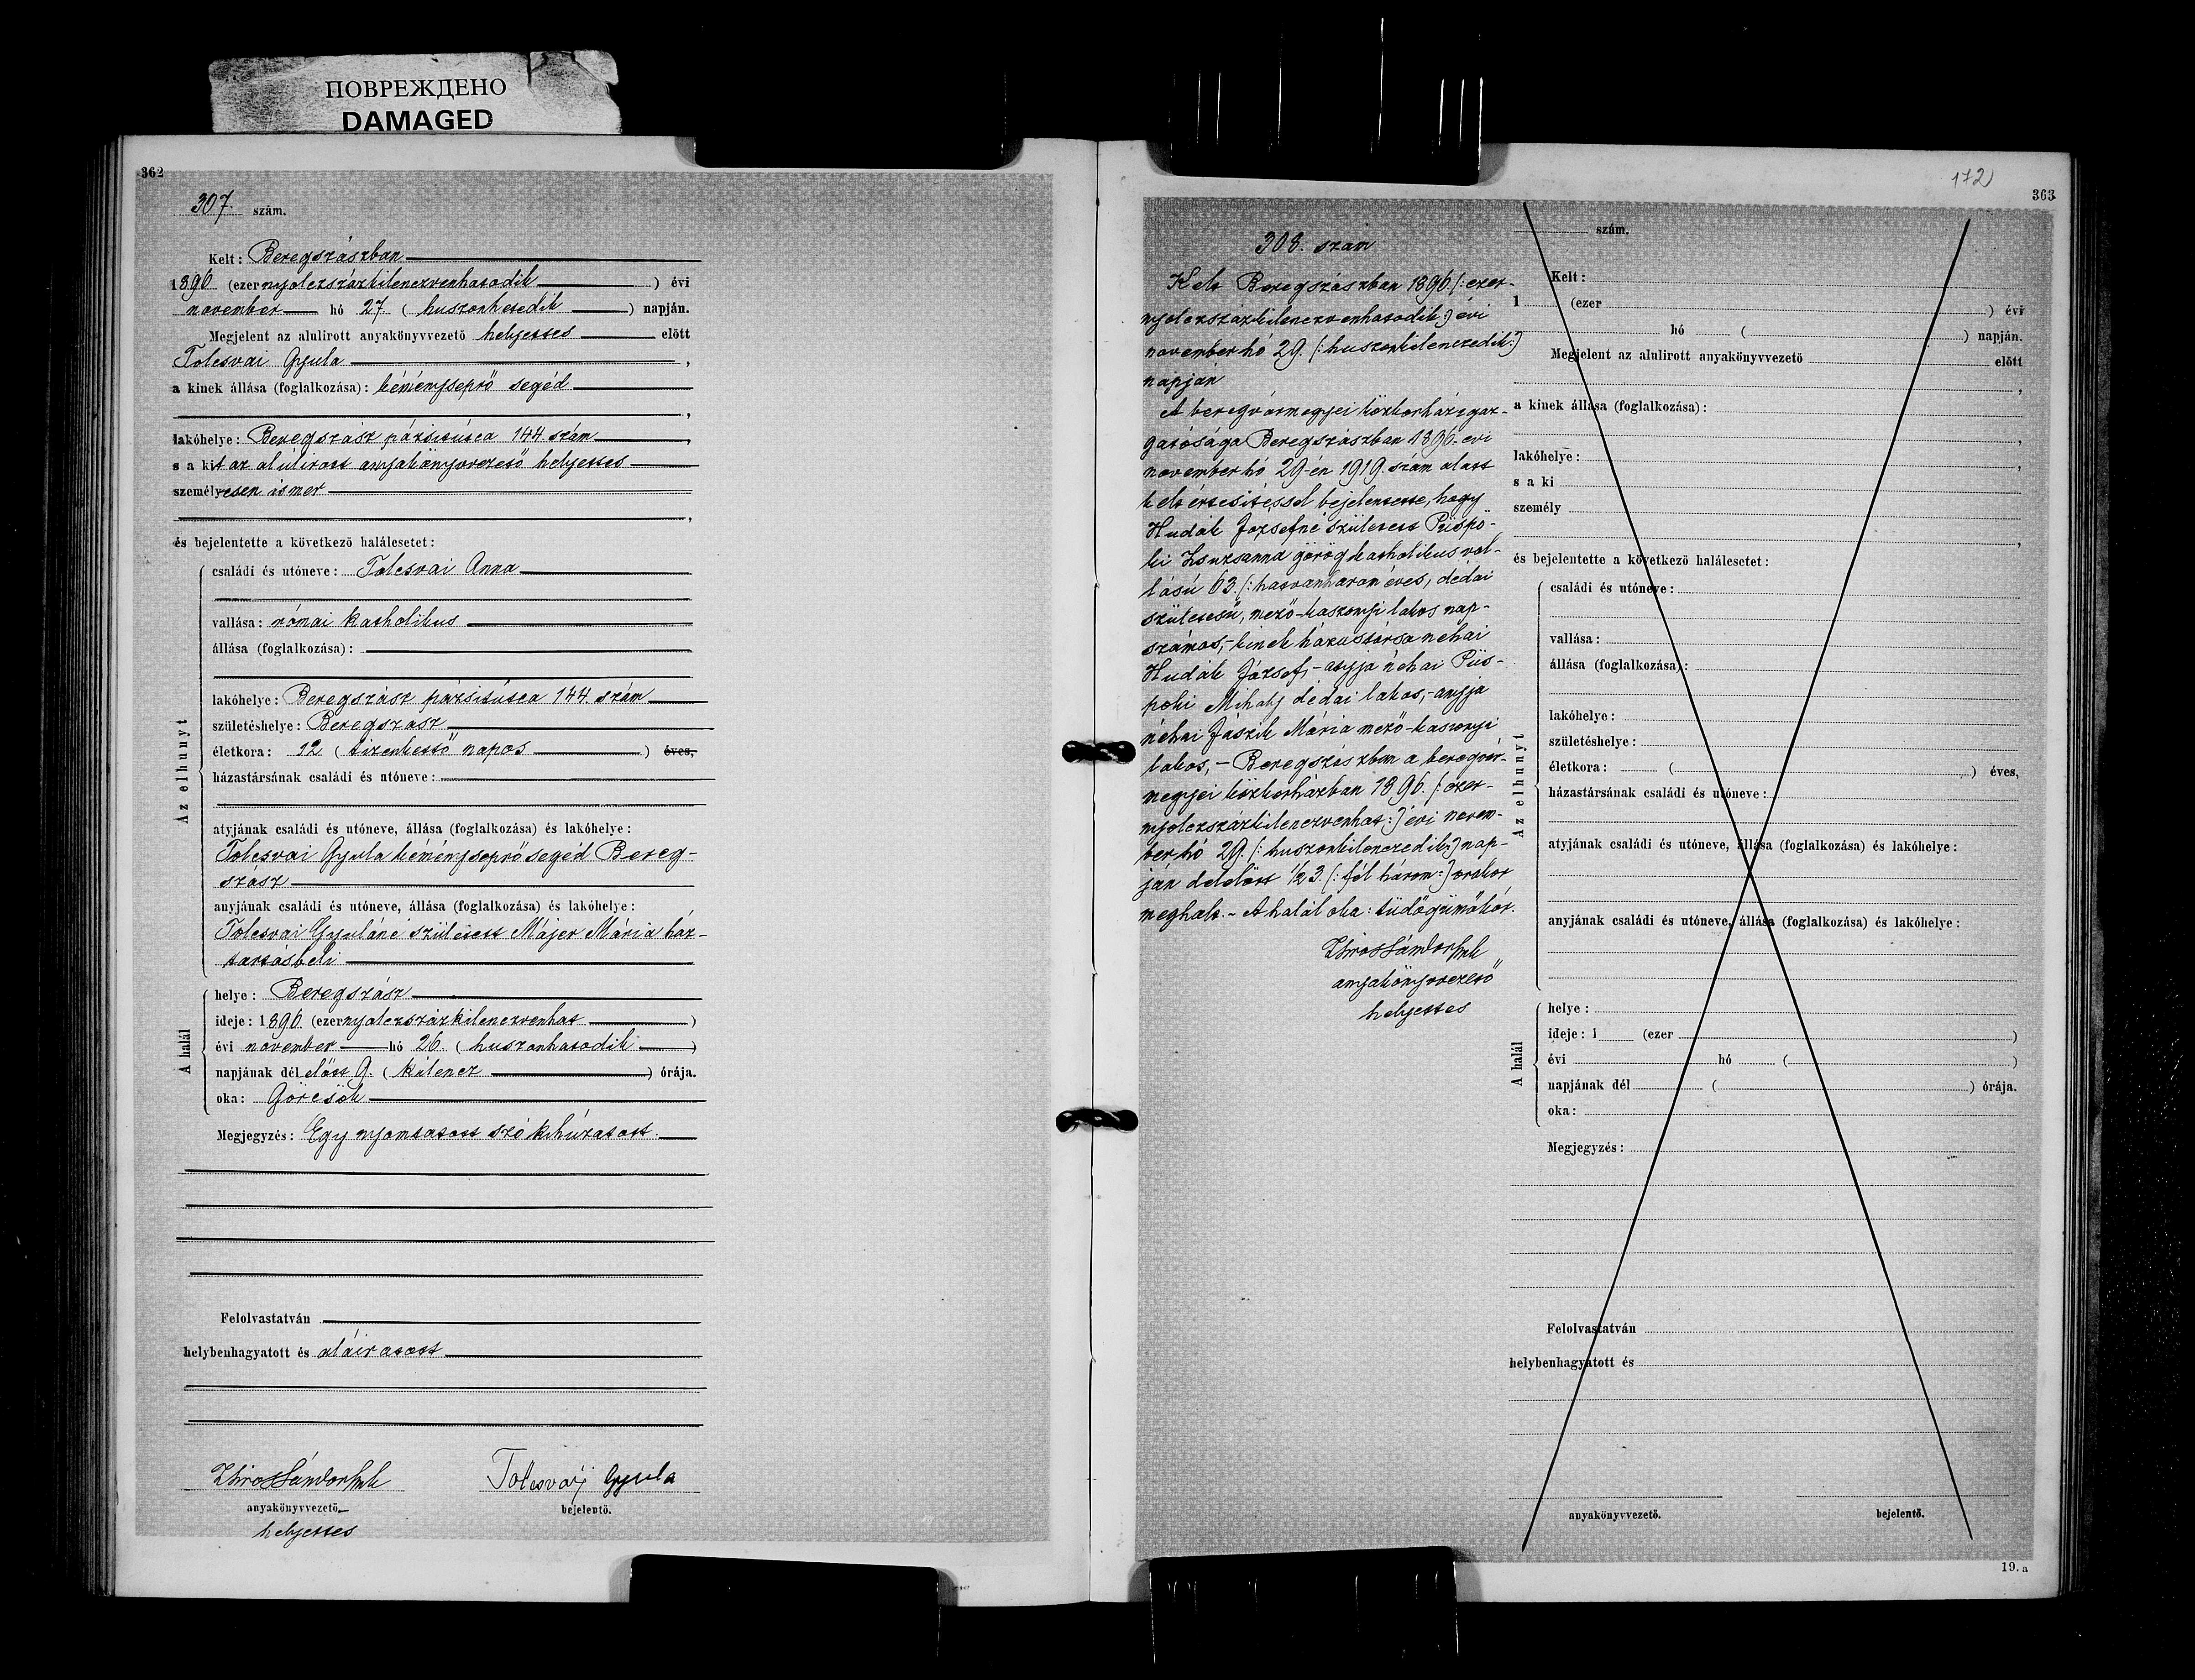 ПОВРЕЖДЕНО
DAMAGED
362
307. szám.
Kelt: Beregszászban
1896 (ezer nyolczszázkilenczvenhatodik) évi
november hó 27 (huszonhetedik) napján.
Megjelent az alulirott anyakönyvvezető helyettes előtt
Tolcsvai Gyula,
a kinek állása (foglalkozása): kéményseprő segéd
,
lakóhelye: Beregszász pázsitútca 144 szám,
s a kit az alúlirott anyakönyvvezető helyettes
személyesen ismer
,
és bejelentette a következő halálesetet:
Az elhunyt
családi és utóneve: Tolcsvai Anna
vallása: római katholikus
állása (foglalkozása):
lakóhelye: Beregszász pázsitútca 144. szám
születéshelye: Beregszász
életkora: 12 (tizenkettő napos) éves,
házastársának családi és utóneve:
atyjának családi és utóneve, állása (foglalkozása) és lakóhelye:
Tolcsvai Gyula kéményseprő segéd Bereg-
szász
anyjának családi és utóneve, állása (foglalkozása) és lakóhelye:
Tolcsvai Gyuláné született Májer Mária ház-
tartásbeli
A halál
helye: Beregszász
ideje: 1896. (ezer nyolczszázkilenczvenhat)
évi november hó 26. (huszonhatodik)
napjának dél előtt 9. (kilencz) órája.
oka: Görcsök
Megjegyzés: Egy nyomtatott szó kihúzatott.
Felolvastatván
helybenhagyatott és aláiratott
Tolcsvaij Gyula
anyakönyvvezető. bejelentő.
helyettes
172
363
308. szám
Kelt Beregszászban 1896 (: ezer-
nyolczszázkilenczvenhatodik :) évi
november hó 29. (: huszonkilenczedik :)
napján
A beregvármegyei közkorház igaz-
gatósága Beregszászban 1896. evi
november hó 29-én 1919. szám alatt
kelt értesitéssel bejelentette, hogy
Hudák Józsefné született Püspö-
ki Zsuzsanna görög katholikus val-
lású 63. (: hatvanhárom éves, dédai
születésű, mező-kaszonyi lakos nap-
számos, - kinek házastársa néhai
Hudák József, - atyja néhai Püs-
pöki Mihály dédai lakos, - anyja
néhai Jászik Mária mező-kaszonyi
lakos, - Beregszászban a beregvár-
megyei közkorházban 1896. (: ezer-
nyolczszázkilenczvenhat :) évi novem-
ber hó 29. (: huszonkilenczedik :) nap-
ján délelőtt 1/2 3. (: fél három :) órakor
meghalt. - A halál oka: tüdőgümőkór.
anyakönyvvezető
helyettes
szám.
Kelt:
1 (ezer ) évi
hó ( ) napján.
Megjelent az alulirott anyakönyvvezető előtt
,
a kinek állása (foglalkozása):
,
lakóhelye: ,
s a ki
személy
,
és bejelentette a következő halálesetet:
Az elhunyt
családi és utóneve:
vallása:
állása (foglalkozása):
lakóhelye:
születéshelye:
életkora: ( ) éves,
házastársának családi és utóneve:
atyjának családi és utóneve, állása (foglalkozása) és lakóhelye:
anyjának családi és utóneve, állása (foglalkozása) és lakóhelye:
A halál
helye:
ideje: 1 (ezer )
évi hó ( )
napjának dél ( ) órája.
oka:
Megjegyzés:
Felolvastatván
helybenhagyatott és
anyakönyvvezető. bejelentő.
19. a